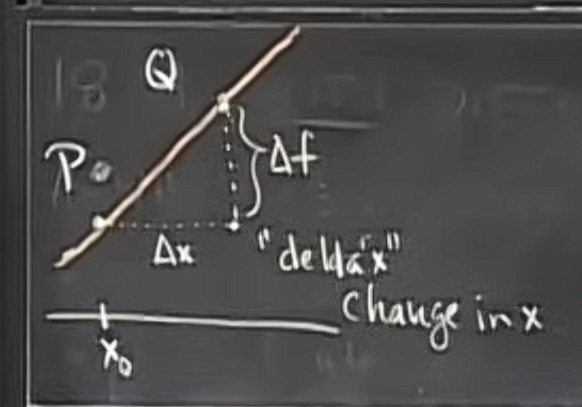 Q
P
Δf
Δx
"delta x"
Change in x
x₀